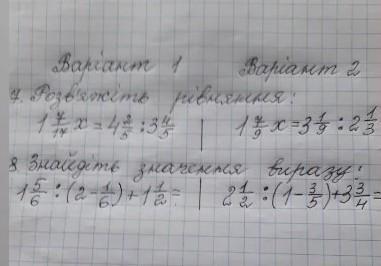 Варіант 1 Варіант 2
7. Розв'яжіть рівняння:
1 7/17 x = 4 2/5 : 3 4/5 | 1 7/9 x = 3 1/9 : 2 1/3
8 Знайдіть значення виразу:
1 5/6 : (2 - 1/6) + 1 1/2 = | 2 1/2 : (1 - 3/5) + 3 3/4 =